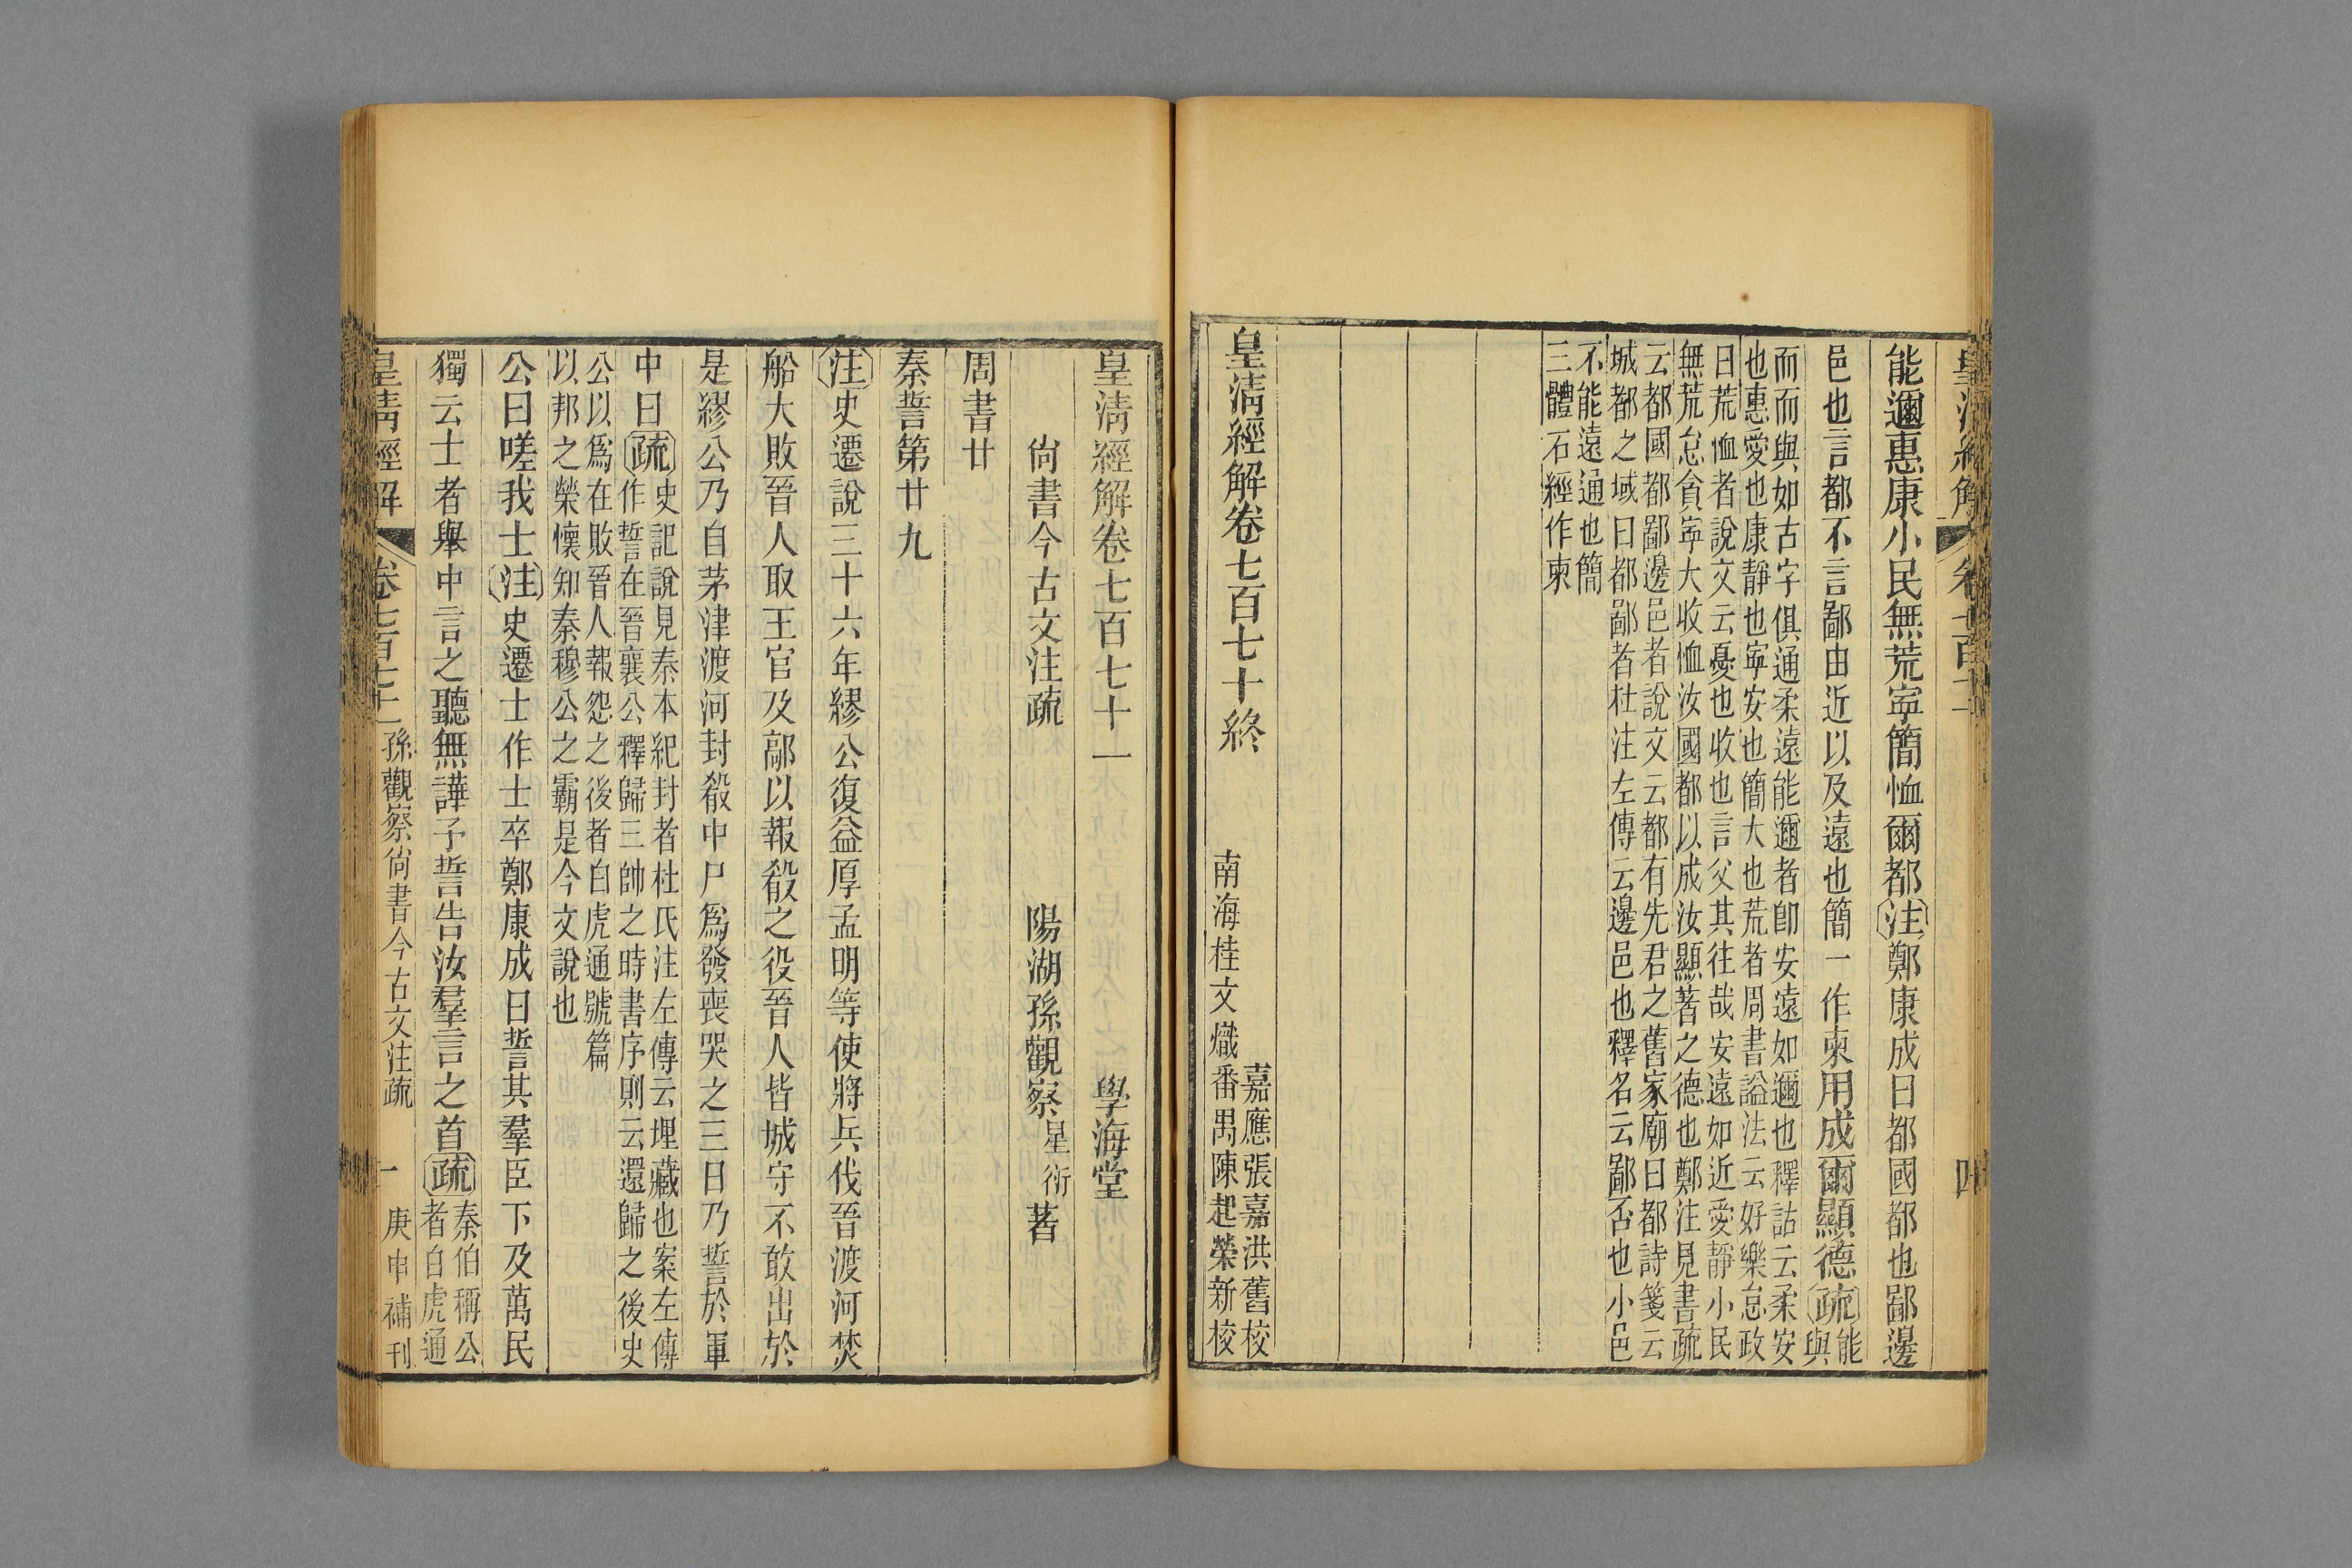 皇清經解
卷七百七十
四
能邇惠康小民無荒寧簡恤爾都注鄭康成曰都國都也鄙邊
邑也言都不言鄙由近以及遠也簡一作柬用成爾顯德疏能
與
而而與如古字俱通柔遠能邇者卽安遠如邇也釋詁云柔安
也惠愛也康靜也寧安也簡大也荒者周書諡法云好樂怠政
曰荒恤者說文云憂也收也言父其往哉安遠如近愛靜小民
無荒怠貪寧大收恤汝國都以成汝顯著之德也鄭注見書疏
云都國都鄙邊邑者說文云都有先君之舊家廟曰都詩箋云
城都之域曰都鄙者杜注左傳云邊邑也釋名云鄙否也小邑
不能遠通也簡
三體石經作柬
皇清經解卷七百七十終
嘉應張嘉洪舊校
南海桂文熾番禺陳起榮新校
皇清經解卷七百七十一
學海堂
尙書今古文注疏
陽湖孫觀察星衍著
周書廿
秦誓第廿九
注史遷說三十六年繆公復益厚孟明等使將兵伐晉渡河焚
船大敗晉人取王官及鄗以報殽之役晉人皆城守不敢出於
是繆公乃自茅津渡河封殽中尸爲發喪哭之三日乃誓於軍
中曰疏史記說見秦本紀封者杜氏注左傳云埋藏也案左傳
作誓在晉襄公釋歸三帥之時書序則云還歸之後史
公以爲在敗晉人報怨之後者白虎通號篇
以邦之榮懷知秦穆公之霸是今文說也
公曰嗟我士注史遷士作士卒鄭康成曰誓其羣臣下及萬民
獨云士者舉中言之聽無譁予誓告汝羣言之首疏秦伯稱公
者白虎通
皇清經解
卷七百七十一
孫觀察尙書今古文注疏
一
庚申補刊